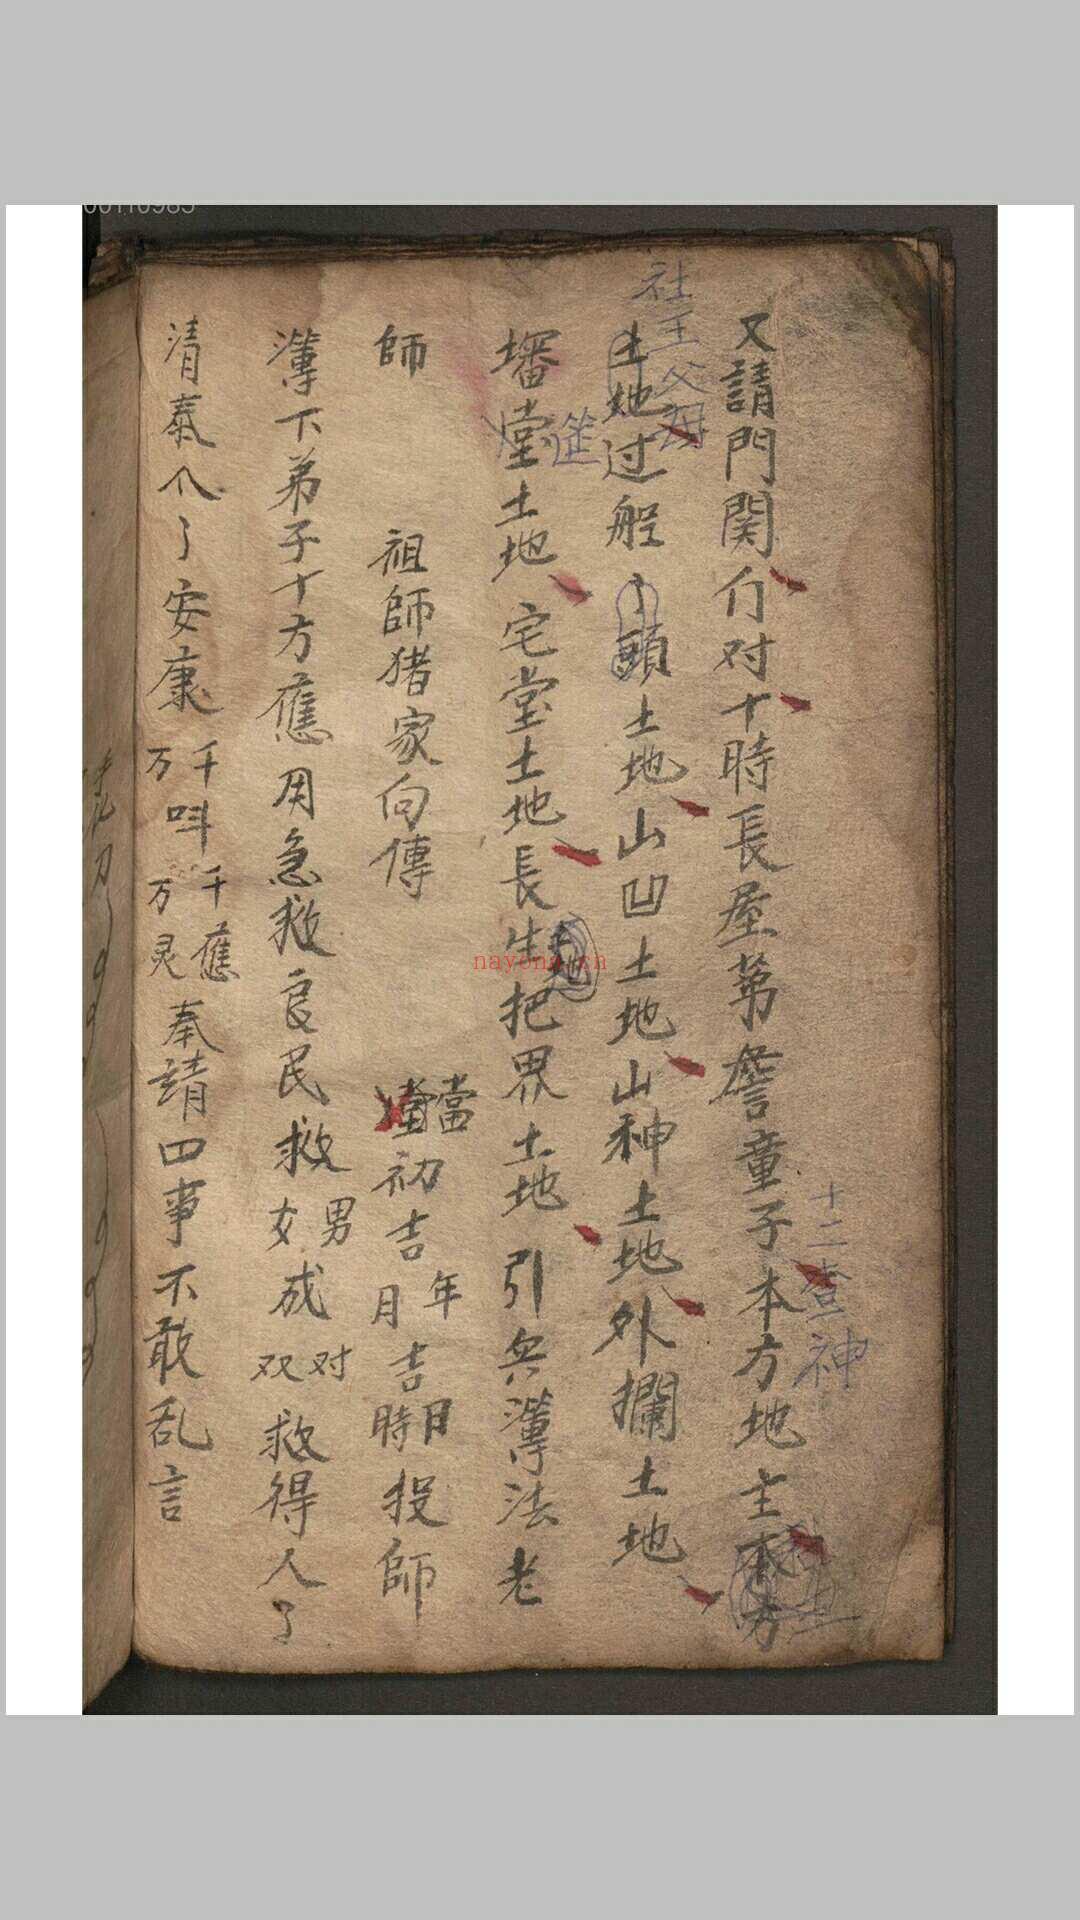 又請門関行对十時長屋第詹童子本方地主本方
十二查神
社王父母
土地过船頭土地山凹土地山神土地外攔土地
墦堂土地宅堂土地長生把界土地引兵簿法老
師 祖師猪家向傳 當初吉年吉月吉日時投師
簿下弟子十方應用急救良民救男女成对双救得人了
清泰人了安康千万呌千万應灵奉請四事不敢乱言
nayona.cn